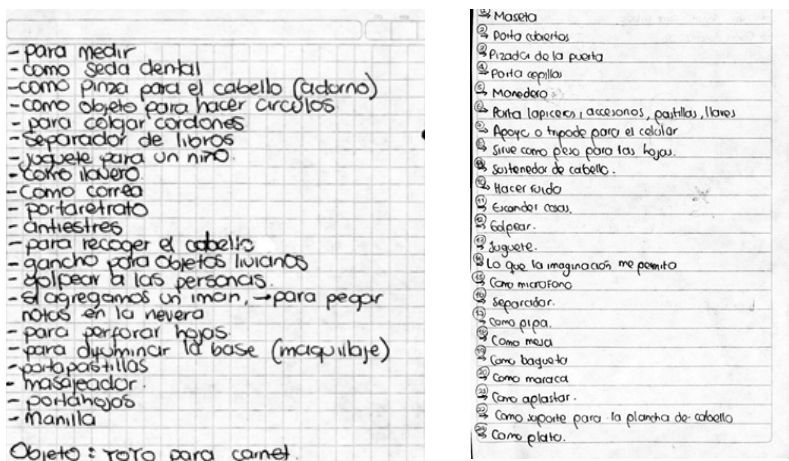 - para medir
- como seda dental
- como pinza para el cabello (adorno)
- como objeto para hacer circulos
- para colgar cordones
- Separador de libros
- juguete para un niño.
- como llavero.
- Como correa
- portaretrato
- antiestres
- para recoger el cabello
- gancho para objetos livianos
- golpear a las personas.
- si agregamos un iman, → para pegar
notas en la nevera
- para perforar hojas.
- para dyuminar la base (maquillaje)
- portapastillas
- masajeador.
- portahojas
- Manilla
Objeto: YoYo para carnet.
① Maseta
② Porta cubiertos
③ Pizador de la puerta
④ Porta cepillos
⑤ Monedero
⑥ Porta lapiceros, accesorios, pastillas, llaves
⑦ Apoyo o tripode para el celular
⑧ Sirve como peso para las hojas.
⑨ Sostenedor de cabello.
⑩ Hacer ruido
⑪ Esconder cosas.
⑫ Golpear.
⑬ Juguete.
⑭ Lo que la imaginación me permita
⑮ Como microfono
⑯ Separador.
⑰ Como pipa.
⑱ Como mesa
⑲ Como baqueta
⑳ Como maraca
㉑ Como aplastar.
㉒ Como soporte para la plancha de cabello
㉓ Como plato.